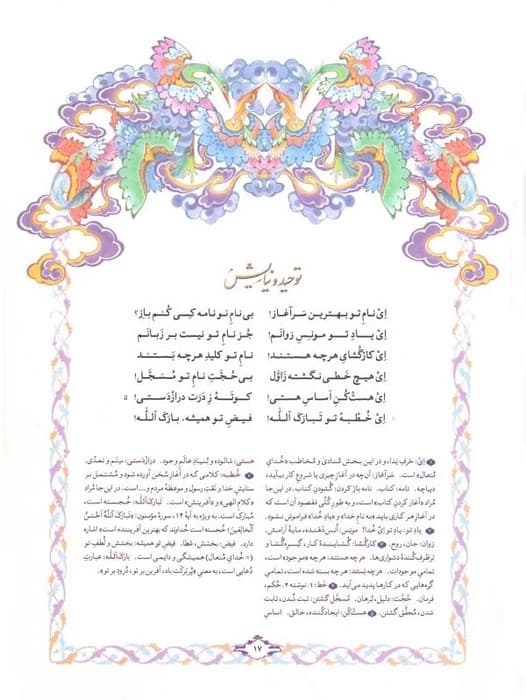 توحید و نیایش
اِیْ نامِ تو بهترین سَرآغاز! بی نامِ تو نامه کِیْ کُنم باز؟
اِیْ یادِ تو مونِسِ رَوانَم! جُز نامِ تو نیست بر زَبانَم
اِیْ کارْگُشایِ هرچه هستند! نامِ تو کلیدِ هرچه بَستند
اِیْ هیچ خطی نگشته زَاوّل بی حُجَّتِ نامِ تو مُسَجَّل!
اِیْ هستْ‌کُنِ اَساسِ هستی! کوتَهْ زِ دَرَت درازْدَستی! ۵
اِیْ خُطْبهٔ تو تَبارَکَ اللّه! فیضِ تو همیشه، بارَکَ اللّه!
۱ اِیْ: حَرفِ نِدا، و در این بخش مُنادی و مُخاطَب «خُدایِ
مُتعال» است. سَرآغاز: آن‌چه در آغازِ چیزی یا شروعِ کار بیاید،
دیباچه. نامه: کتاب. نامه باز کردن: گشودنِ کتاب. در این جا
مُراد آغاز کردنِ کتاب است، و به طورِ کُلّی مَقصود آن است که
در آغازِ هر کاری باید «به نامِ خدا» و «یادِ خدا» فراموش نشود.
۲ یادِ تو: یادِ تو اِیْ خُدا! مونِس: اُنس‌دَهنده، مایهٔ آرامش.
رَوان: جان، روح. ۳ کارْگُشا: گُشاینده‌ٔ کار، گِره‌گُشا و
برطرف‌کُنندهٔ دشواری‌ها. هرچه هستند: هرچه «موجود» است،
تمامیِ موجودات. هرچه بَستند: هرچه بسته شده است، تمامیِ
گره‌هایی که در کارها پدید می‌آید. ۴ خط: ۱. نوشته ۲. حُکم،
فرمان. حُجّت: دلیل، بُرهان. مُسَجَّل گشتن: ثبت شدن، ثابت
شدن، مُحقَّق گشتن. ۵ هستْ‌کُن: ایجادکننده، خالق. اَساسِ
هستی: شالوده و بُنیادِ عالمِ وجود. درازْدَستی: سِتم و تَعدّی.
۶ خُطبه: کلامی که در آغازِ سُخن آورده شود و مُشتمل بر
ستایشِ خدا و نَعْتِ رسول و موعظهٔ مردم و... است. در این جا مُراد
«کلامِ الهی» و «آفرینش» است. تَبارَکَ اللّه: خُجسته است،
خُدای مُتعال است. به ویژه به آیهٔ ۱۴، سورهٔ مؤمنون: «فَتَبارَکَ اللّهُ اَحْسَنُ
الْخالِقینَ: خُجسته است خُداوند که بهترینِ آفریننده است» اشاره
دارد. فیض: بخشش، عَطا. فیضِ تو همیشه: بخشش و لُطفِ تو
(= خُدایِ مُتعال) همیشگی و دایمی است. بارَکَ اللّه: عبارتِ
دُعایی است، به معنیِ «پُربَرکَت باد، آفرین بر تو، دُرود بر تو».
۱۷